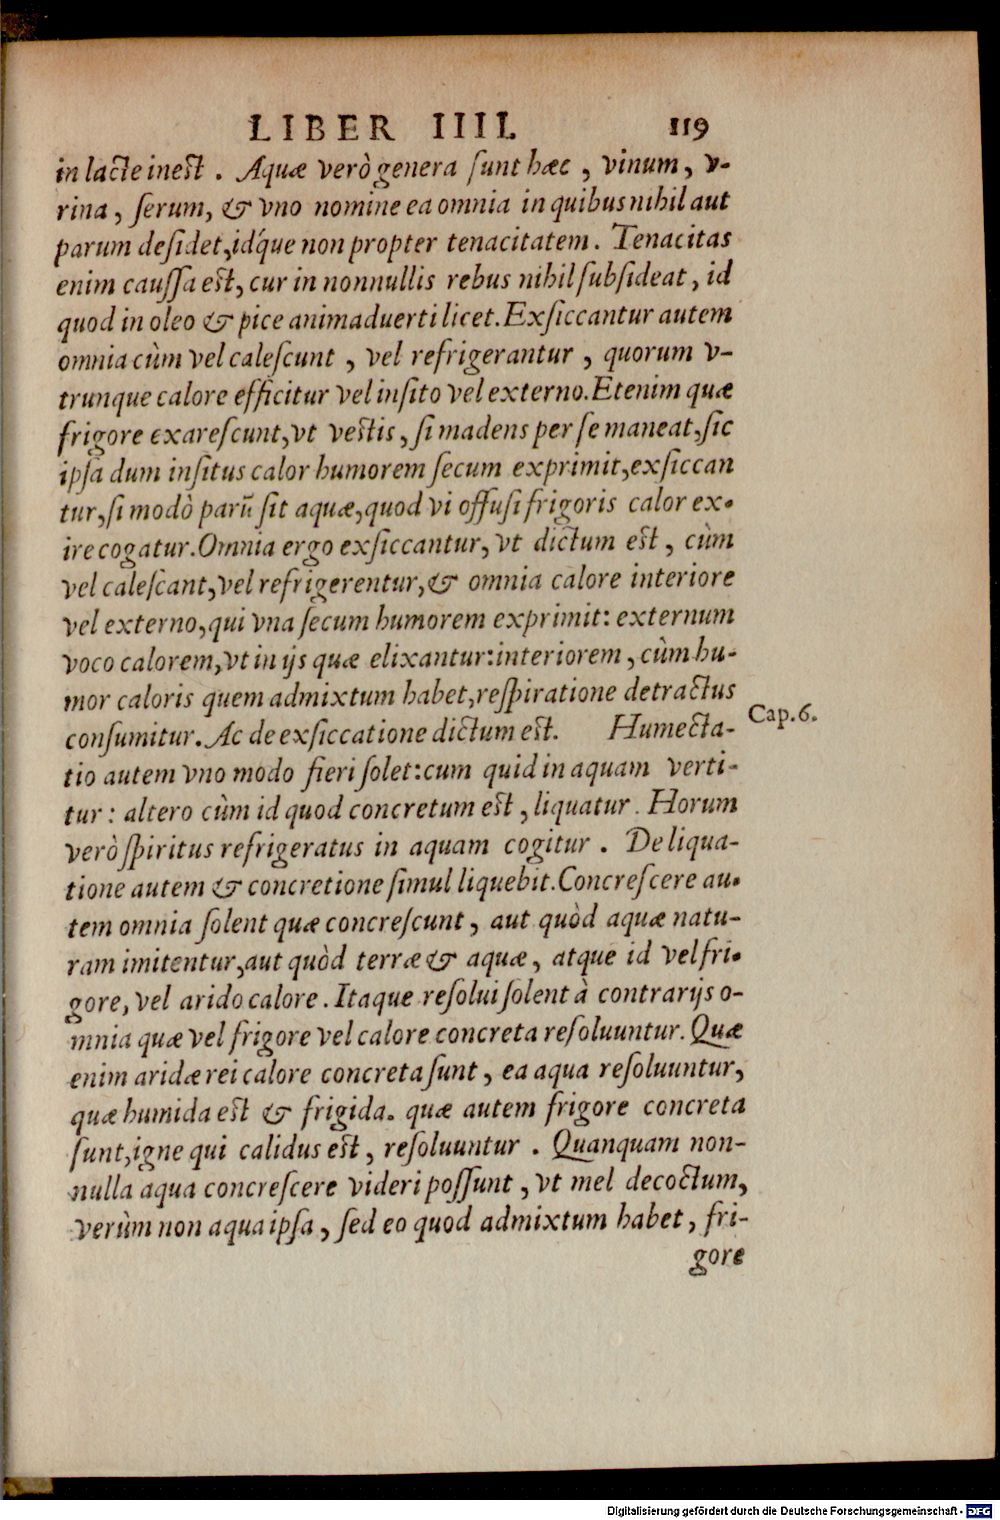 LIBER IIII. 119
in lacte inest . Aquæ verò genera ſunt hæc , vinum, v-
rina, ſerum, & vno nomine ea omnia in quibus nihil aut
parum deſidet, id'que non propter tenacitatem. Tenacitas
enim cauſſa est, cur in nonnullis rebus nihil ſubſideat, id
quod in oleo & pice animaduerti licet. Exſiccantur autem
omnia cùm vel caleſcunt , vel refrigerantur , quorum v-
trunque calore efficitur vel inſito vel externo. Etenim quæ
frigore exareſcunt, vt vestis, ſi madens per ſe maneat, ſic
ipſa dum inſitus calor humorem ſecum exprimit, exſiccan
tur, ſi modò parũ ſit aquæ, quod vi offuſi frigoris calor ex-
ire cogatur. Omnia ergo exſiccantur, vt dictum est , cùm
vel caleſcant, vel refrigerentur, & omnia calore interiore
vel externo, qui vna ſecum humorem exprimit: externum
voco calorem, vt in ijs quæ elixantur: interiorem , cùm hu-
mor caloris quem admixtum habet, reſpiratione detractus
conſumitur. Ac de exſiccatione dictum est. Humecta-
Cap. 6.
tio autem vno modo fieri ſolet: cum quid in aquam verti-
tur : altero cùm id quod concretum est , liquatur . Horum
verò ſpiritus refrigeratus in aquam cogitur . De liqua-
tione autem & concretione ſimul liquebit. Concreſcere au-
tem omnia ſolent quæ concreſcunt, aut quòd aquæ natu-
ram imitentur, aut quòd terræ & aquæ, atque id vel fri-
gore, vel arido calore. Itaque reſolui ſolent à contrarijs o-
mnia quæ vel frigore vel calore concreta reſoluuntur. Quæ
enim aridæ rei calore concreta ſunt, ea aqua reſoluuntur,
quæ humida est & frigida. quæ autem frigore concreta
ſunt, igne qui calidus est, reſoluuntur . Quanquam non-
nulla aqua concreſcere videri poſſunt , vt mel decoctum,
verùm non aqua ipſa, ſed eo quod admixtum habet, fri-
gore
Digitalisierung gefördert durch die Deutsche Forschungsgemeinschaft - DFG